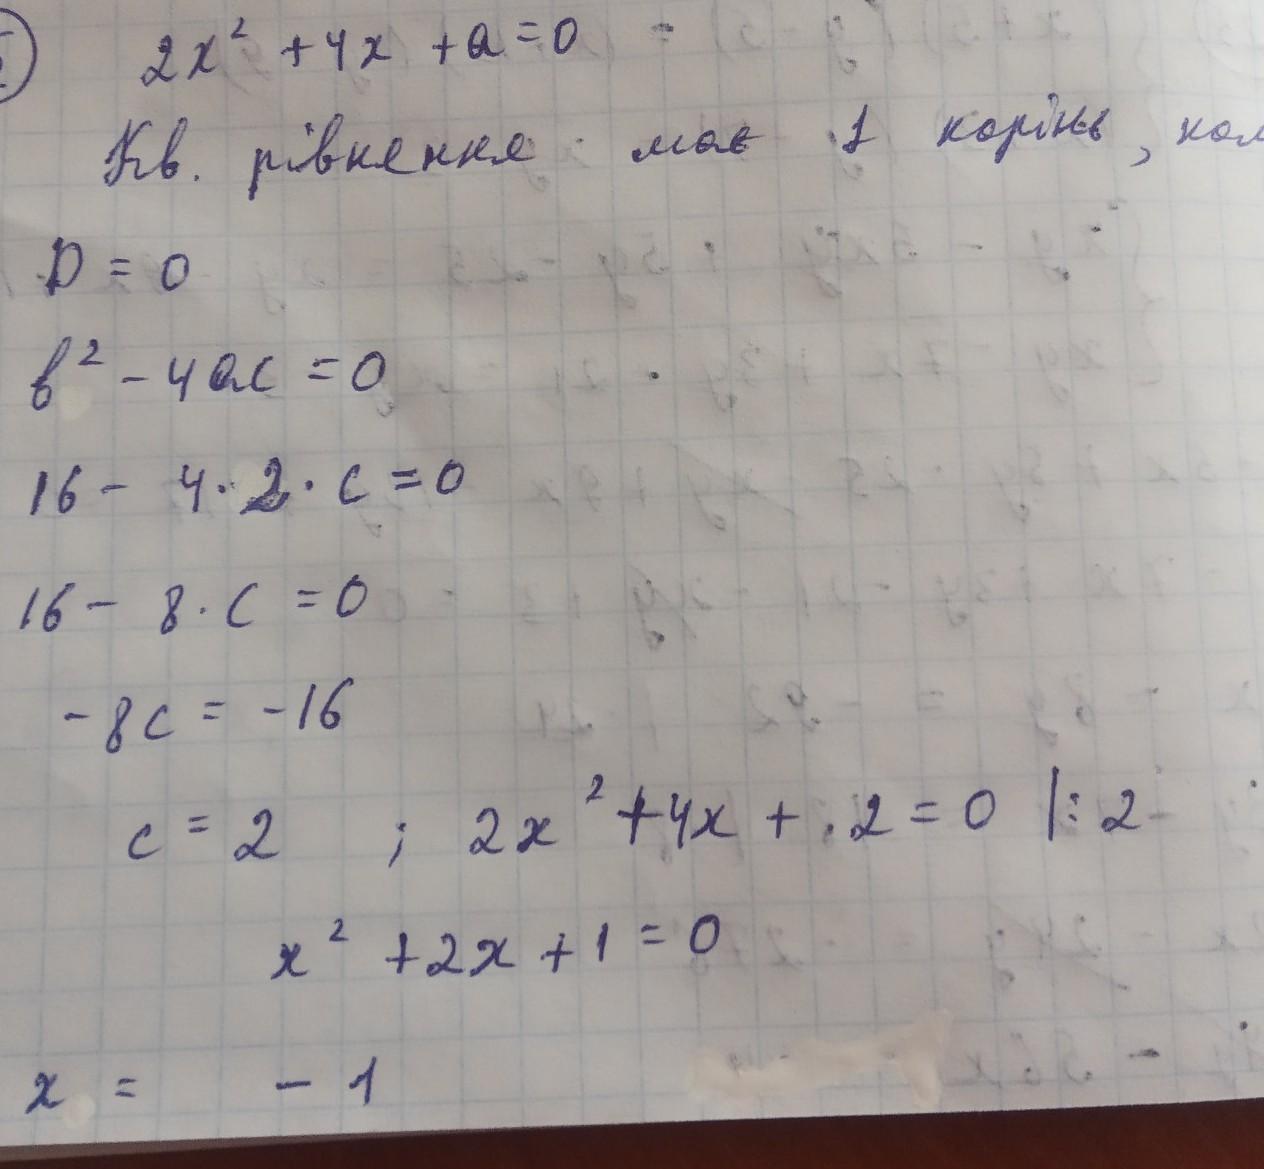 2x² + 4x + a = 0
Кв. рівняння має 1 корінь, кол
D = 0
b² - 4ac = 0
16 - 4 · 2 · c = 0
16 - 8 · c = 0
-8c = -16
c = 2 ; 2x² + 4x + 2 = 0 |: 2
x² + 2x + 1 = 0
x = - 1